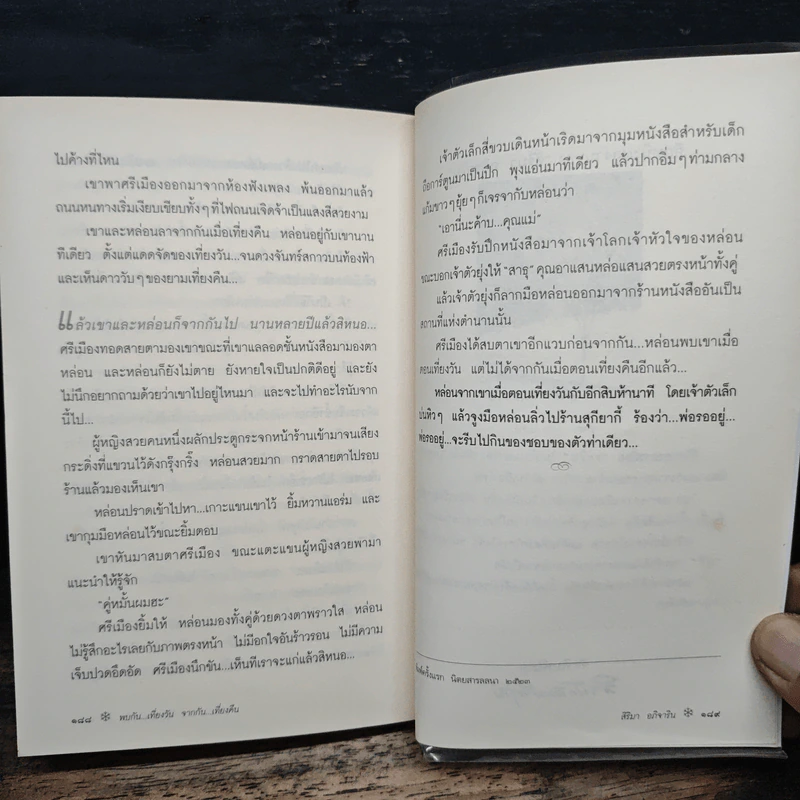 ไปค้างที่ไหน
เขาพาศรีเมืองออกมาจากห้องฟังเพลง พ้นออกมาแล้ว
ถนนหนทางเริ่มเงียบเชียบทั้งๆ ที่ไฟถนนเจิดจ้าเป็นแสงสีสวยงาม
เขาและหล่อนลาจากกันเมื่อเที่ยงคืน หล่อนอยู่กับเขานาน
ทีเดียว ตั้งแต่แดดจัดของเที่ยงวัน...จนดวงจันทร์สกาวบนท้องฟ้า
และเห็นดาววับๆ ของยามเที่ยงคืน...
แล้วเขาและหล่อนก็จากกันไป นานหลายปีแล้วสิหนอ...
ศรีเมืองทอดสายตามองเขาขณะที่เขาแลลอดชั้นหนังสือมามองตา
หล่อน และหล่อนก็ยังไม่ตาย ยังหายใจเป็นปกติดีอยู่ และยัง
ไม่นึกอยากถามด้วยว่าเขาไปอยู่ไหนมา และจะไปทำอะไรนับจาก
นี้ไป...
ผู้หญิงสวยคนหนึ่งผลักประตูกระจกหน้าร้านเข้ามาจนเสียง
กระดิ่งที่แขวนไว้ดังกรุ๊งกริ๊ง หล่อนสวยมาก กราดสายตาไปรอบ
ร้านแล้วมองเห็นเขา
หล่อนปราดเข้าไปหา...เกาะแขนเขาไว้ ยิ้มหวานแอร่ม และ
เขากุมมือหล่อนไว้ขณะยิ้มตอบ
เขาหันมาสบตาศรีเมือง ขณะแตะแขนผู้หญิงสวยพามา
แนะนำให้รู้จัก
"คู่หมั้นผมฮะ"
ศรีเมืองยิ้มให้ หล่อนมองทั้งคู่ด้วยดวงตาพราวใส หล่อน
ไม่รู้สึกอะไรเลยกับภาพตรงหน้า ไม่มีอกใจอันร้าวรอน ไม่มีความ
เจ็บปวดอึดอัด ศรีเมืองนึกขัน...เห็นทีเราจะแก่แล้วสิหนอ...
๑๘๘ ❄ พบกัน...เที่ยงวัน จากกัน...เที่ยงคืน
เจ้าตัวเล็กสี่ขวบเดินหน้าเริดมาจากมุมหนังสือสำหรับเด็ก
ถือการ์ตูนมาเป็นปึก พุงแอ่นมาทีเดียว แล้วปากอิ่มๆ ท่ามกลาง
แก้มขาวๆ ยุ้ยๆ ก็เจรจากับหล่อนว่า
"เอานี่นะค้าบ...คุณแม่"
ศรีเมืองรับปึกหนังสือมาจากเจ้าโลกเจ้าหัวใจของหล่อน
ขณะบอกเจ้าตัวยุ่งให้ "สาธุ" คุณอาแสนหล่อแสนสวยตรงหน้าทั้งคู่
แล้วเจ้าตัวยุ่งก็ลากมือหล่อนออกมาจากร้านหนังสืออันเป็น
สถานที่แห่งตำนานนั้น
ศรีเมืองได้สบตาเขาอีกแวบก่อนจากกัน...หล่อนพบเขาเมื่อ
ตอนเที่ยงวัน แต่ไม่ได้จากกันเมื่อตอนเที่ยงคืนอีกแล้ว...
หล่อนจากเขาเมื่อตอนเที่ยงวันกับอีกสิบห้านาที โดยเจ้าตัวเล็ก
บ่นหิวๆ แล้วจูงมือหล่อนลิ่วไปร้านสุกียากี้ ร้องว่า...พ่อรออยู่...
พ่อรออยู่...จะรีบไปกินของชอบของตัวท่าเดียว...
พิมพ์ครั้งแรก นิตยสารลลนา ๒๕๒๓
สิริมา อภิจาริน ❄ ๑๘๙